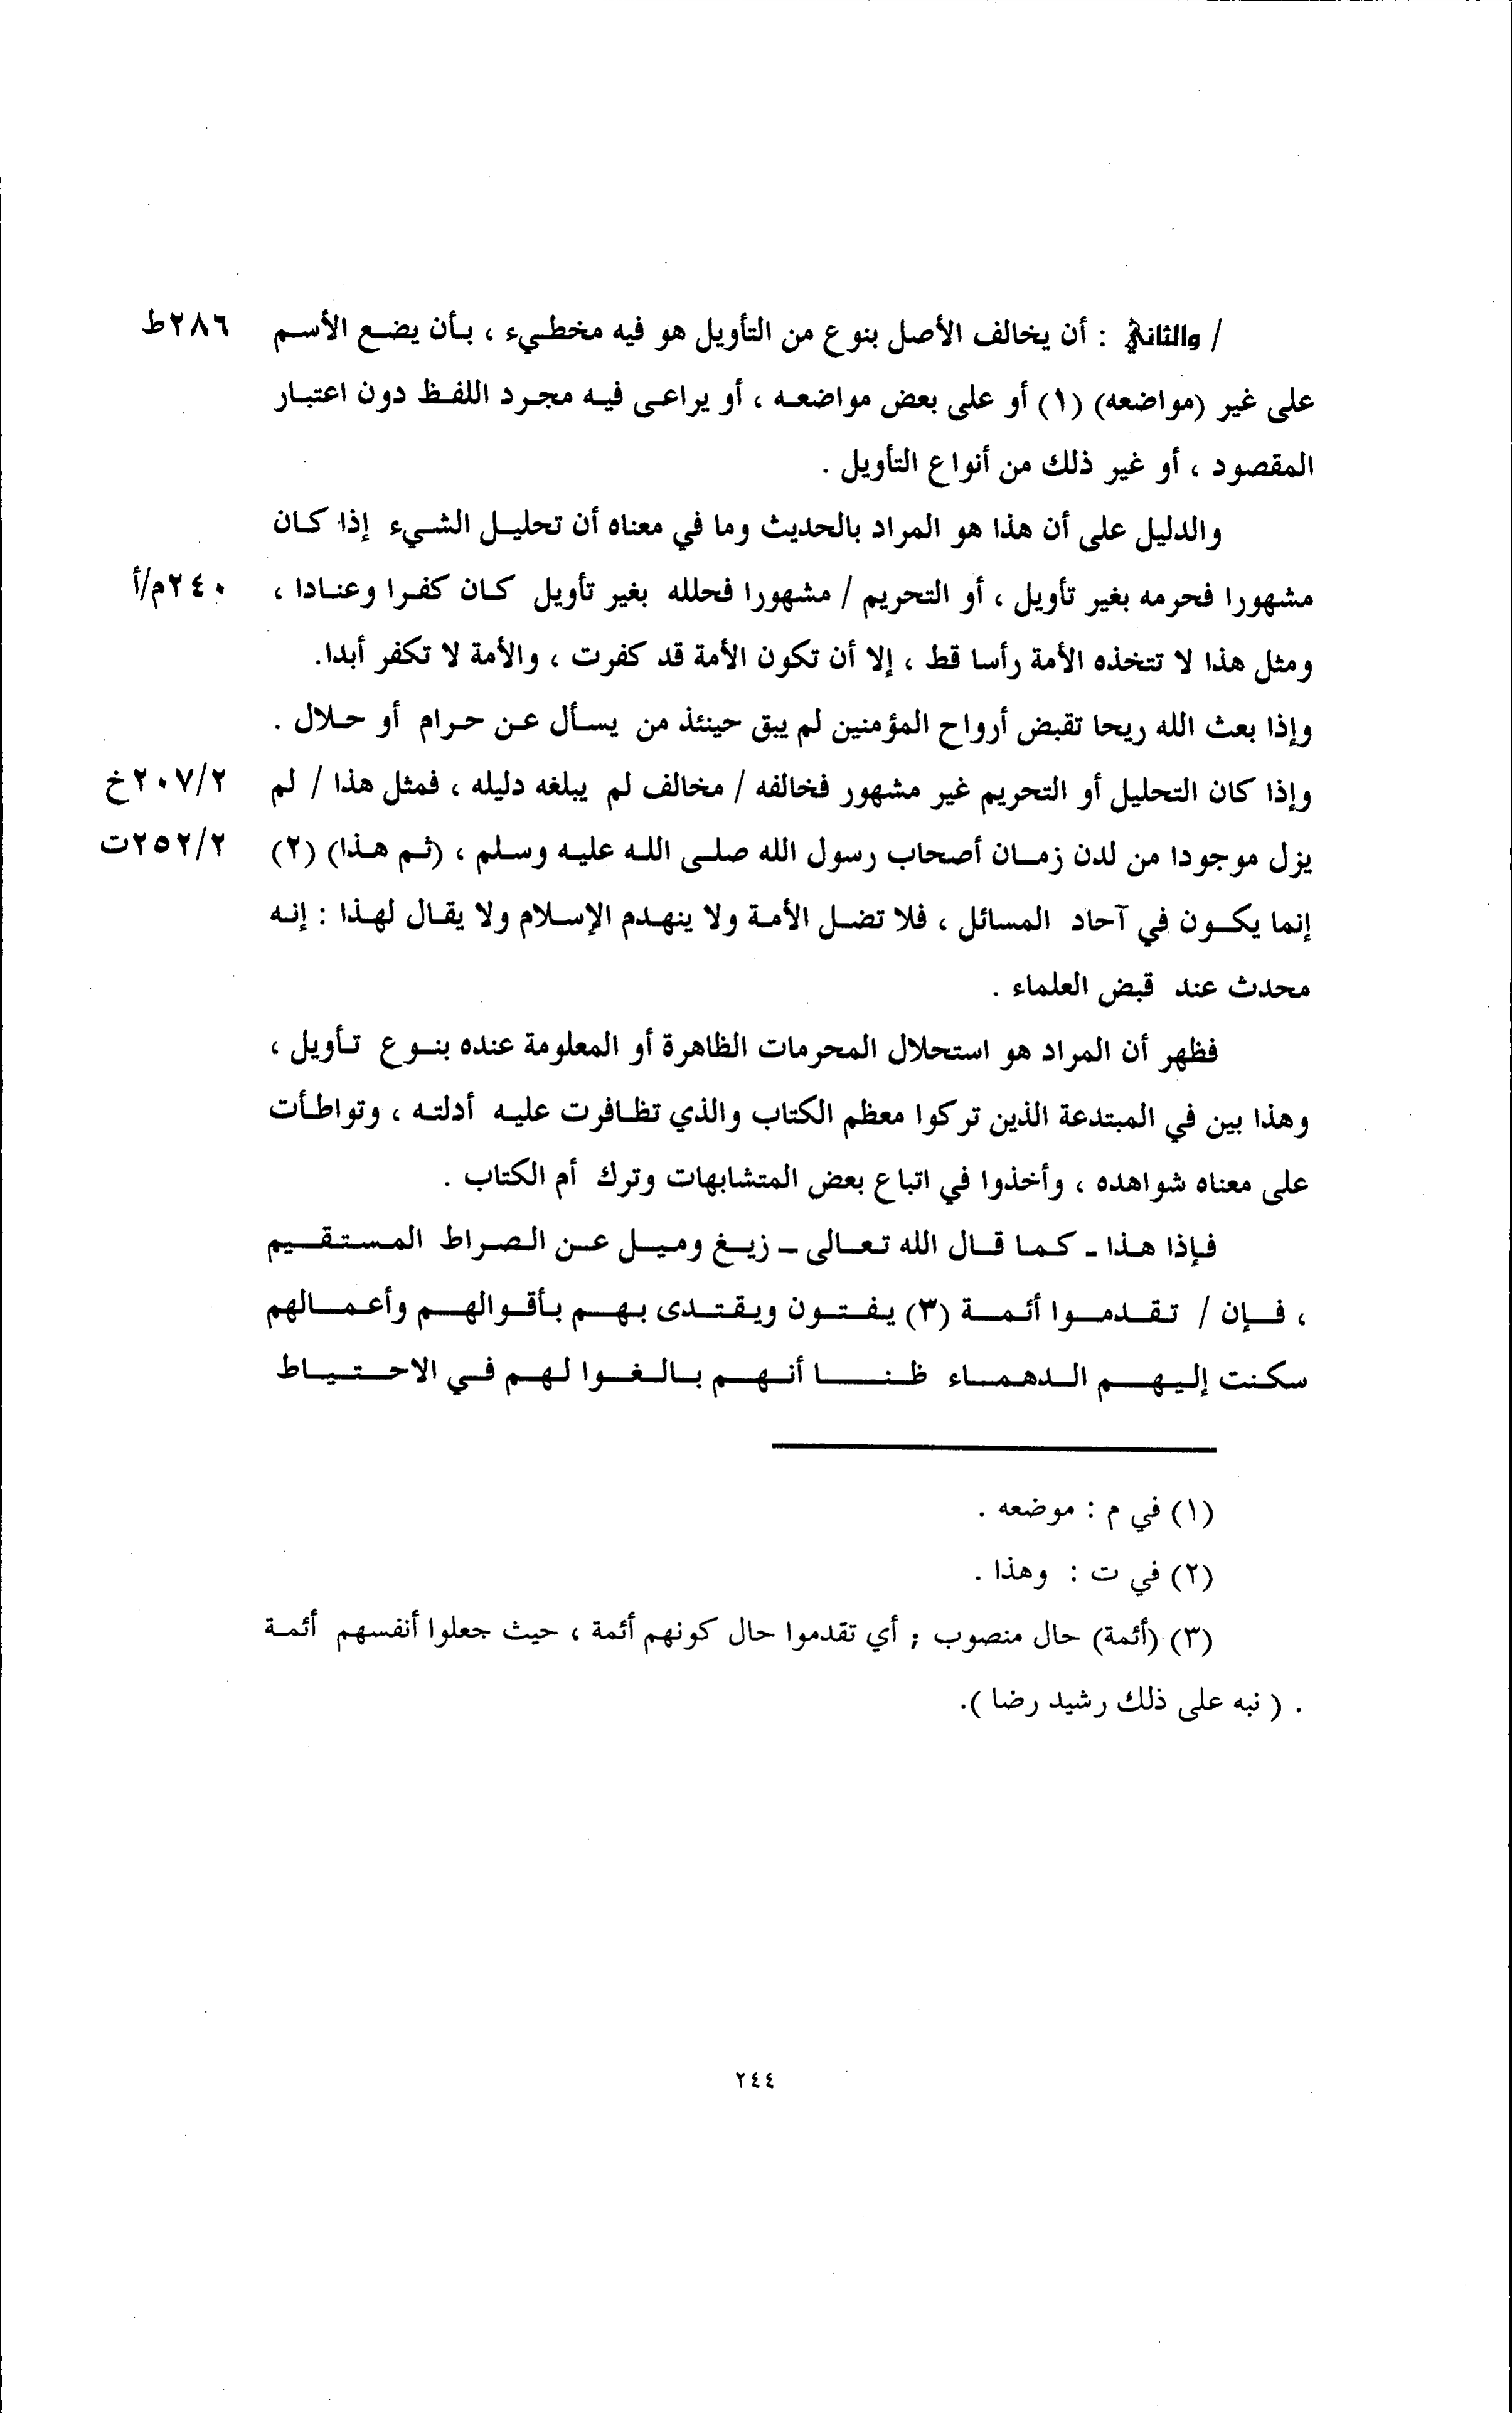 / والثاني : أن يخالف الأصل بنوع من التأويل هو فيه مخطيء ، بأن يضع الأسم ٢٨٦ط
على غير (مواضعه) (١) أو على بعض مواضعه ، أو يراعى فيه مجرد اللفظ دون اعتبار
المقصود ، أو غير ذلك من أنواع التأويل .
والدليل على أن هذا هو المراد بالحديث وما في معناه أن تحليل الشيء إذا كان
مشهورا فحرمه بغير تأويل ، أو التحريم / مشهورا فحلله بغير تأويل كان كفرا وعنادا ، ٢٤٠م/أ
ومثل هذا لا تتخذه الأمة رأسا قط ، إلا أن تكون الأمة قد كفرت ، والأمة لا تكفر أبدا.
وإذا بعث الله ريحا تقبض أرواح المؤمنين لم يبق حينئذ من يسأل عن حرام أو حلال .
وإذا كان التحليل أو التحريم غير مشهور فخالفه / مخالف لم يبلغه دليله ، فمثل هذا / لم ٢٠٧/٢خ
يزل موجودا من لدن زمان أصحاب رسول الله صلى الله عليه وسلم ، (ثم هذا) (٢) ٢٥٢/٢ت
إنما يكون في آحاد المسائل ، فلا تضل الأمة ولا ينهدم الإسلام ولا يقال لهذا : إنه
محدث عند قبض العلماء .
فظهر أن المراد هو استحلال المحرمات الظاهرة أو المعلومة عنده بنوع تأويل ،
وهذا بين في المبتدعة الذين تركوا معظم الكتاب والذي تظافرت عليه أدلته ، وتواطأت
على معناه شواهده ، وأخذوا في اتباع بعض المتشابهات وترك أم الكتاب .
فإذا هذا - كما قال الله تعالى - زيغ وميل عن الصراط المستقيم
، فإن / تقدموا أئمة (٣) يفتون ويقتدى بهم بأقوالهم وأعمالهم
سكنت إليهم الدهماء ظنا أنهم بالغوا لهم في الاحتياط
(١) في م : موضعه .
(٢) في ت : وهذا .
(٣) (أئمة) حال منصوب ; أي تقدموا حال كونهم أئمة ، حيث جعلوا أنفسهم أئمة
. ( نبه على ذلك رشيد رضا ).
٢٤٤